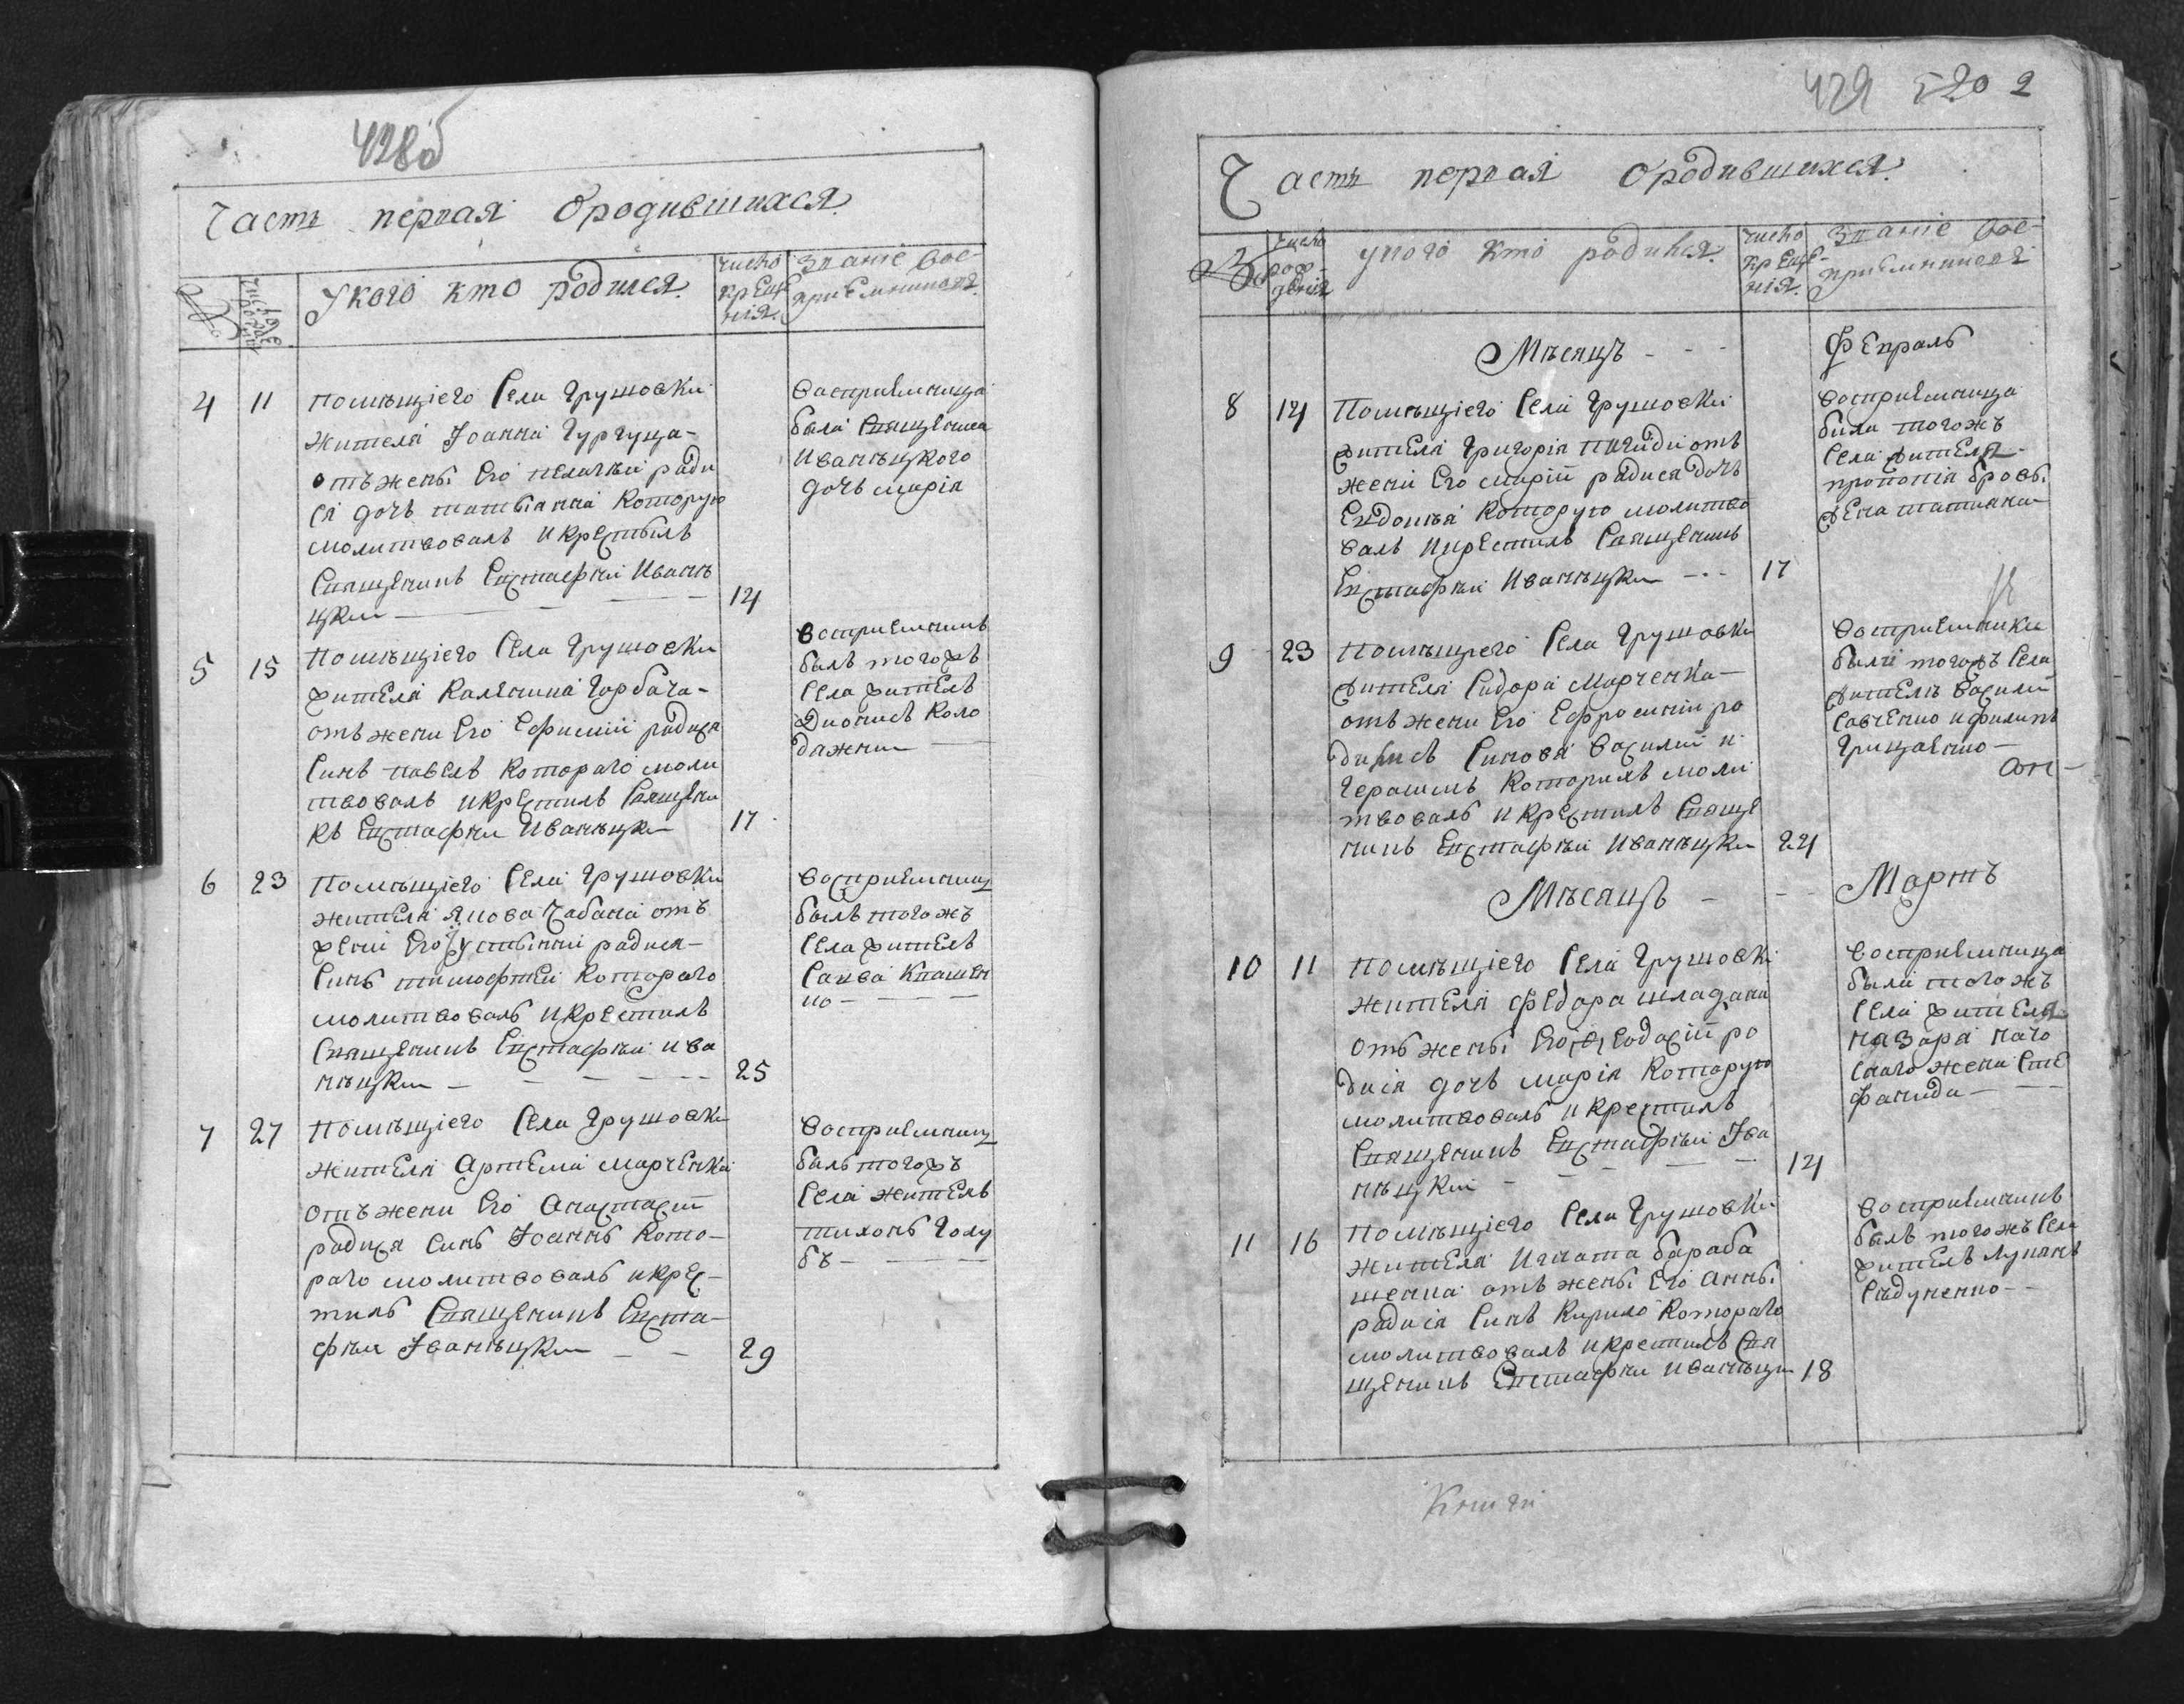 428б
Часть первая Ородившихся
№
число рожде нія
Укого кто родился
число
крЕще
нія.
Званіе Вос-
пріЕмниковъ
4 11
Помѣщіего Села Грушовки
жителя Іоанна Гургуца-
отъ жены Его пелагѣи роди
ся дочь татьянна Которую
молитвовалъ икрЕстилъ
СвящЕникъ ЕвстафѣЙ Иванѣ
цкии 14
ВоспріЕмница
была СвящЕника
Иванѣцкого
дочь марія
5 15
Помѣщіего Села Грушовки
жителя КалЕника Горбача-
отъ жени Его Ефиміи родися
Синъ павЕлъ Котораго моли
твовалъ икрЕстилъ СвящЕни
къ Евстафѣи Иванѣцки 17
ВоспріЕмникъ
былъ тогожъ
Села житЕль
Діонисъ Коло
дажни
6 23
Помѣщіего Села Грушовки
жителя Якова Чабана отъ
жЕни Его Устыніи родися-
Синъ тимофтЕй Котораго
молитвовалъ икрЕстилъ
СвящЕникъ Евстафѣи ива
нѣцки 25
ВоспріЕмник
былъ тогожъ
Села житЕль
Савва КвашЕн
ко
7 27
Помѣщіего Села Грушовки
жителя АртЕма МарчЕнка
отъ жени Его Анастасіи
родися Синъ Іоаннъ Кото-
раго молитвовалъ икрЕс-
тилъ СвящЕникъ Евста-
фѣи Іванѣцки 29
ВоспріЕмник
былъ тогожъ
Села житЕль
тихонъ Голу
бъ
429 520 2
Часть первая Ородившихся
№
число
рож-
дЕнія
укого кто родился
число
крЕще-
нія.
Званіе Вос-
пріЕмниковъ
Мѣсяцъ ФЕвраль
8 14
Помѣщіего Села Грушовки
житЕля Григорія отъ
жени Его маріи родися дочь
Евдокія Которую молитво
валъ икрЕстилъ СвящЕникъ
Евстафѣи Иванѣцки 17
ВоспріЕмница
была тогожъ
Села житЕля
прокопія Бровы
жЕна татияна
9 23
Помѣщіего Села Грушовки
житЕля Сидора Марченка
отъ жени Его Ефросиніи ро
дились Синова Василий и
Герасимъ Которихъ моли
твовалъ икрЕстилъ СвящЕ
никъ Евстафѣи Иванѣцки 24
ВоспріЕмники
были тогожъ Села
житЕлѣ Василий
СавчЕнко ифилипъ
ГрицаЕнко
Мѣсяцъ Мартъ
10 11
Помѣщіего Села Грушовки
жителя ФЕдора шлядана
отъ жены Его ѲЕодосіи ро
дися дочь марія Которую
молитвовалъ икрестилъ
СвящЕникъ Евстафѣи Іва
нѣцкии 14
ВоспріЕмница
была тогожъ
Села житЕля
назара
жена СтЕ
фанида
11 16
Помѣщіего Села Грушовки
жителя Игната бараба
шенка отъ жены Его Анны
родися Синъ Кирило Котораго
молитвовалъ икрестилъ Свя
щЕникъ Евстафѣи Иванѣцки 18
ВоспріЕмникъ
былъ тогожъ Села
житЕль лукянъ
СѣдунЕнко
Книги